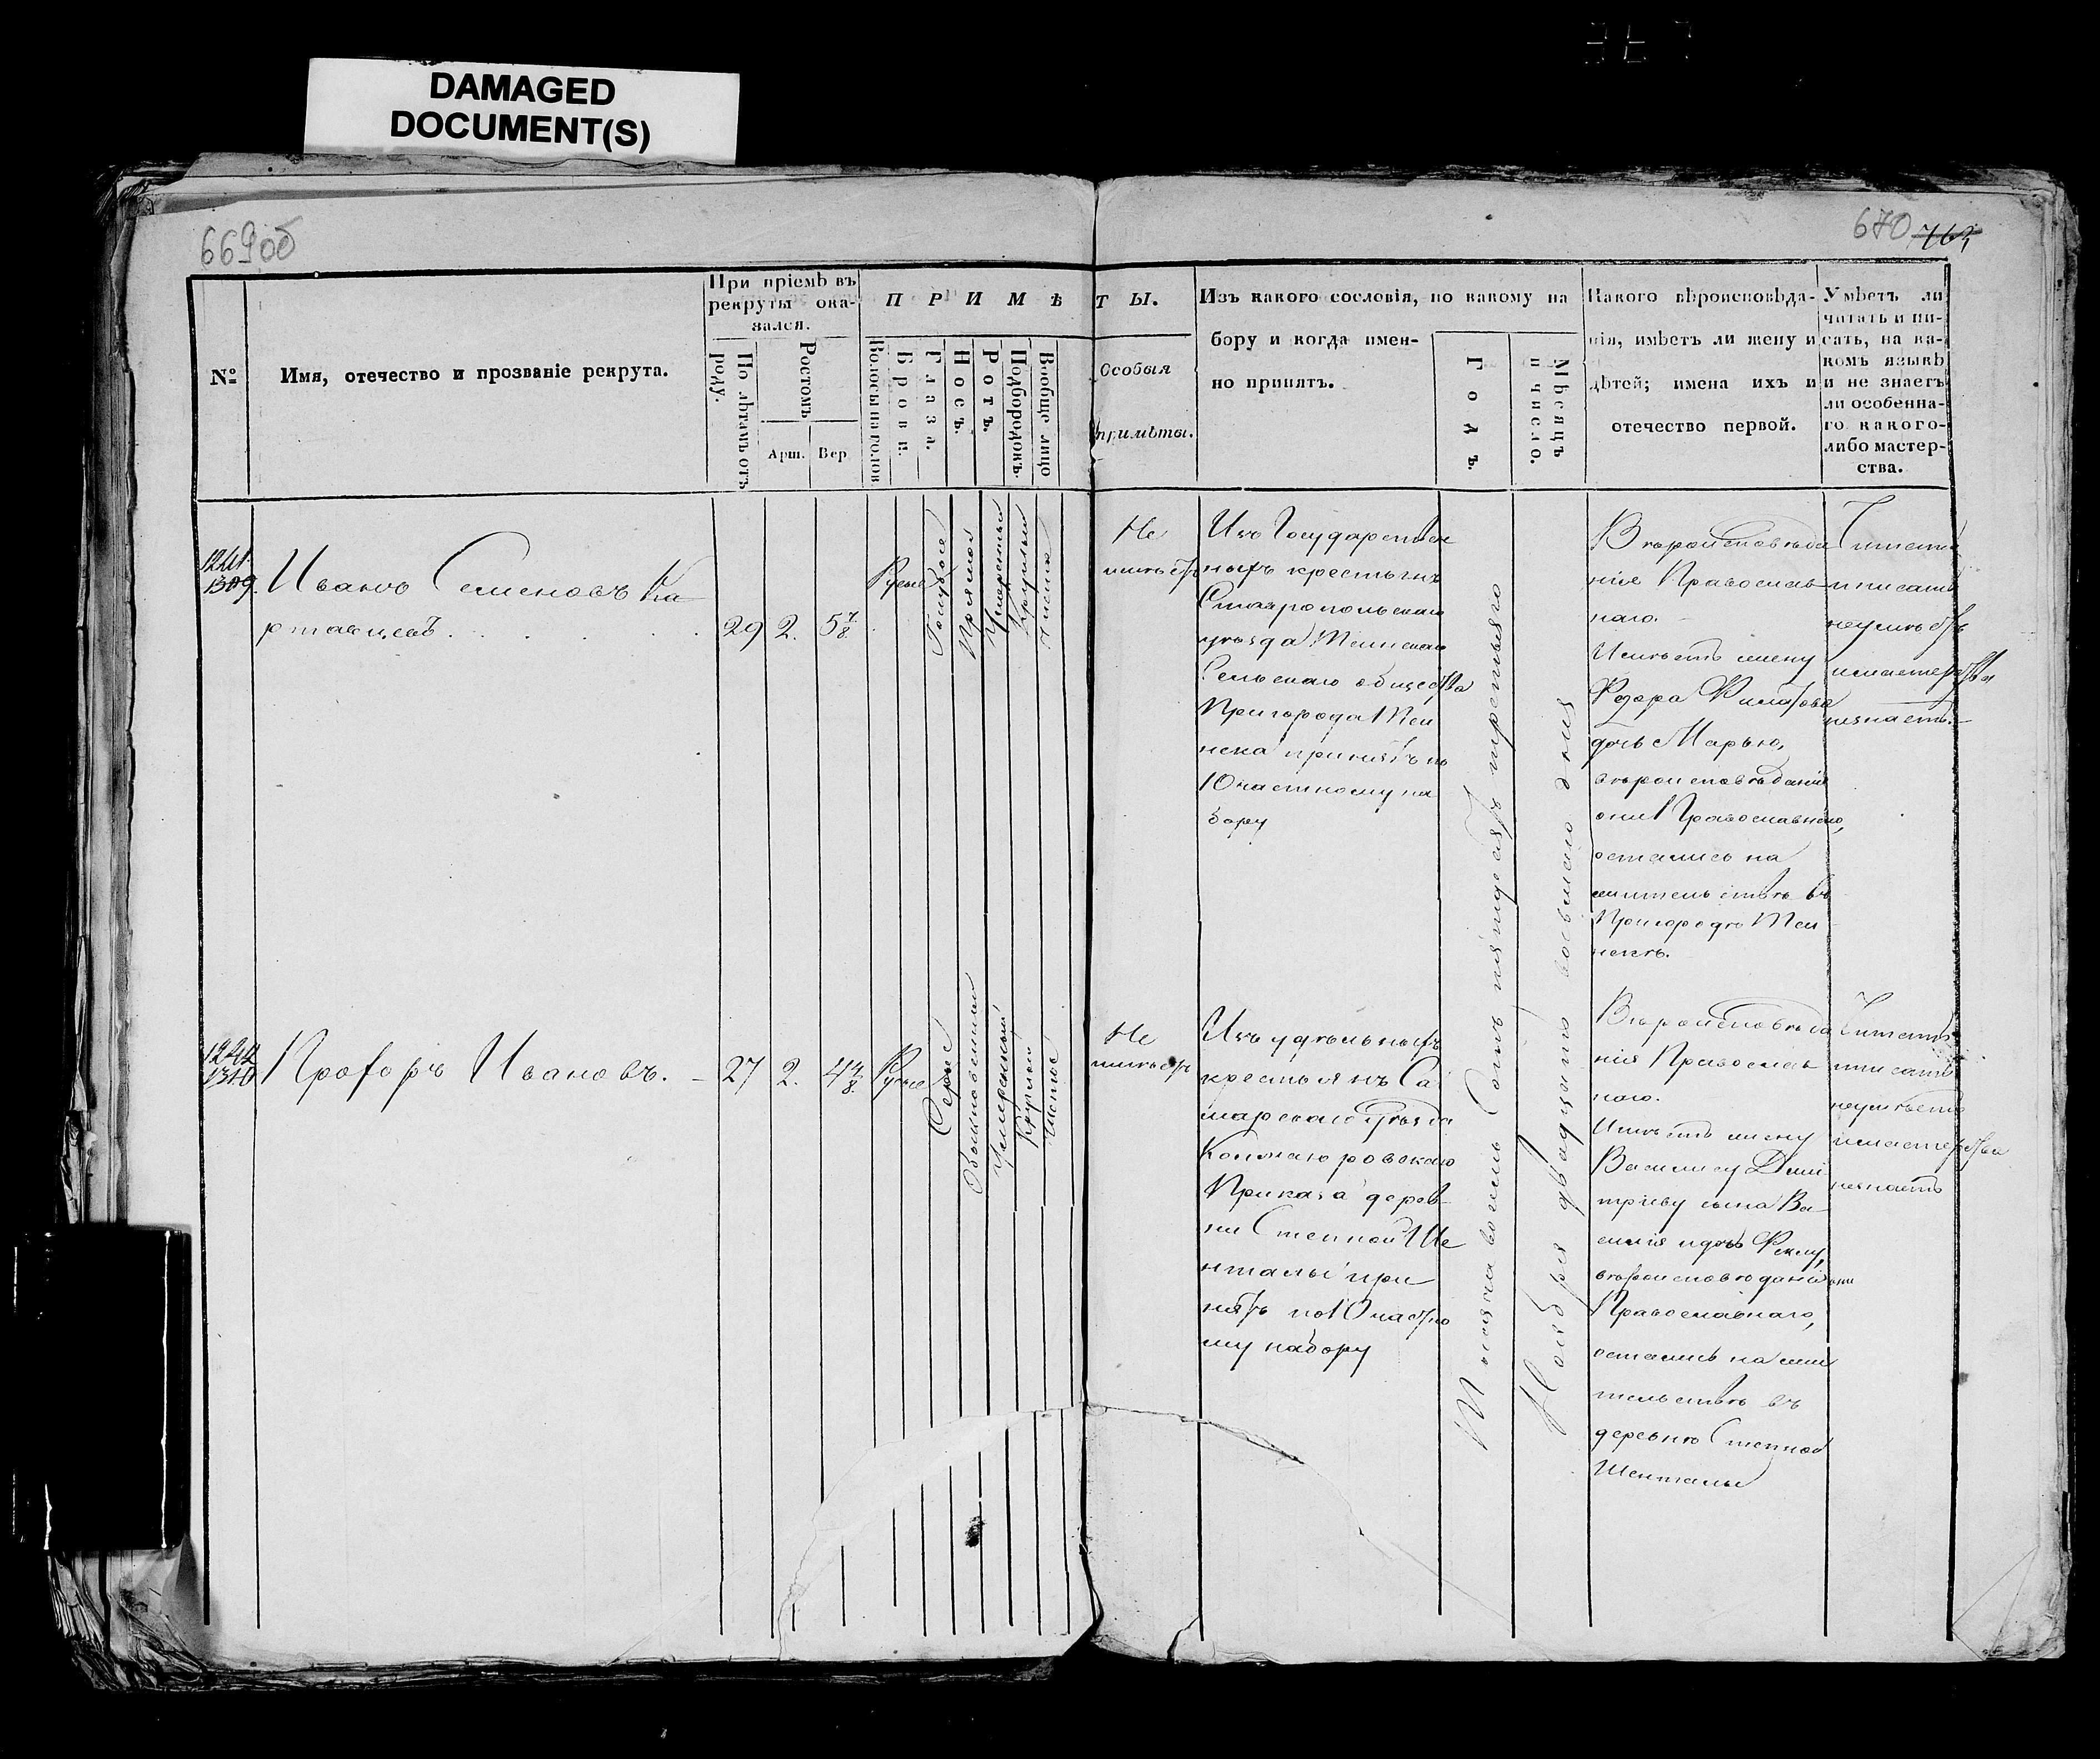 DAMAGED
DOCUMENT(S)
669об
670
№
Имя, отечество и прозваніе рекрута.
При пріемѣ въ
рекруты ока-
зался.
По лѣтамъ отъ
роду.
Ростомъ
Арш.
Вер
ПРИМѢТЫ.
Волосы на голов
Брови.
Глаза.
Носъ.
Ротъ.
Подбородокъ.
Вообще лицо
Особыя
примѣты.
Изъ какого сословія, по какому на
бору и когда имен-
но принятъ.
Годъ.
Мѣсяцъ
и число.
Какого вѣроисповѣда-
нія, имѣетъ ли жену и
дѣтей; имена ихъ и
отечество первой.
Умѣетъ ли
читать и пи-
сать, на ка-
комъ языкѣ
и не знаетъ
ли особенна-
го какого-
либо мастер-
ства.
1241.
1309.
Иванъ Семеновъ Ка
ртавцевъ
29
2.
5 7/8
Русые
Голубые
Прямой
Умеренный
Круглый
Чистое
Не
имѣетъ
Изъ Государствен
ныхъ крестьянъ
Ставропольскаго
уѣзда Тиинскаго
Сельскаго общества
Пригорода Тии
нска принятъ по
10 частному на
бору
Тысяча восемь сотъ пятдесятъ третьяго
Ноября двадцать восьмаго дня
Вѣроисповѣда
нія Православ
наго.
Имѣетъ жену
Федора Филатова
дочь Марью,
вѣроисповѣданія
они Православнаго,
остались на
жительствѣ въ
Пригородѣ Тии
нскѣ.
Читать
и писать
неумѣетъ
и мастерства
незнаетъ.
1242
1310
Прохоръ Ивановъ.
27
2.
4 4/8
Русые
Серые
Обыкновенный
Умеренный
Круглый
Чистое
Не
имѣетъ
Изъ удѣльныхъ
крестьянъ Са
марскаго уѣзда
Приказа дерев
ни Степной Ше
нталы при
нятъ по 10 частно
му набору
Вѣроисповѣда
нія Православ
наго.
Имѣетъ жену
Василису Дми
тріеву сына Ва
силія и дочь Феклу,
вѣроисповѣданія они
Православнаго,
остались на жи
тельствѣ въ
деревнѣ Степной
Шенталы
Читать
и писать
неумѣетъ
и мастерства
незнаетъ